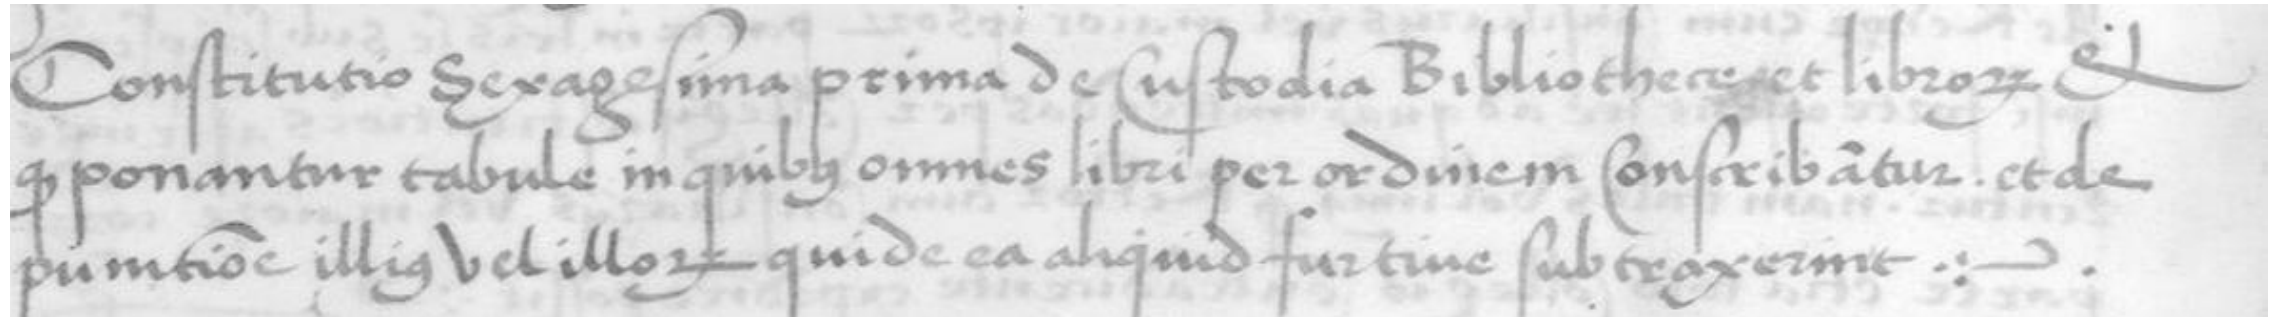 Constitutio Sexagesima prima de Custodia Bibliothece et libroꝝ &
ꝙ ponantur tabule in quibꝰ omnes libri per ordinem Conscribãtur . et de
punitiõe illiꝰ vel illoꝝ qui de ea aliquid furtiue subtraxerint .